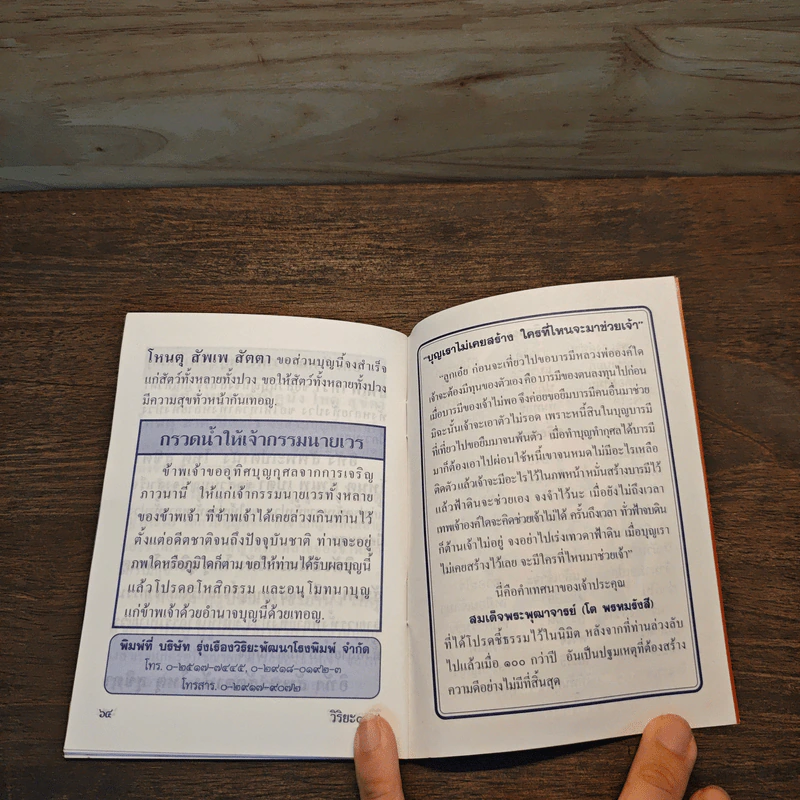 โหนตุ สัพเพ สัตตา ขอส่วนบุญนี้จงสำเร็จ
แก่สัตว์ทั้งหลายทั้งปวง ขอให้สัตว์ทั้งหลายทั้งปวง
มีความสุขทั่วหน้ากันเทอญ.
กรวดน้ำให้เจ้ากรรมนายเวร
ข้าพเจ้าขออุทิศบุญกุศลจากการเจริญ
ภาวนานี้ ให้แก่เจ้ากรรมนายเวรทั้งหลาย
ของข้าพเจ้า ที่ข้าพเจ้าได้เคยล่วงเกินท่านไว้
ตั้งแต่อดีตชาติจนถึงปัจจุบันชาติ ท่านจะอยู่
ภพใดหรือภูมิใดก็ตาม ขอให้ท่านได้รับผลบุญนี้
แล้วโปรดอโหสิกรรม และอนุโมทนาบุญ
แก่ข้าพเจ้าด้วยอำนาจบุญนี้ด้วยเทอญ.
พิมพ์ที่ บริษัท รุ่งเรืองวิริยะพัฒนาโรงพิมพ์ จำกัด
โทร. ๐-๒๕๑๗-๗๔๔๕, ๐-๒๙๑๘-๐๑๙๒-๓
โทรสาร. ๐-๒๙๑๗-๙๐๗๒
๖๔ วิริยะ
"บุญเราไม่เคยสร้าง ใครที่ไหนจะมาช่วยเจ้า"
"ลูกเอ๋ย ก่อนจะเที่ยวไปขอบารมีหลวงพ่อองค์ใด
เจ้าจะต้องมีทุนของตัวเอง คือ บารมีของตนลงทุนไปก่อน
เมื่อบารมีของเจ้าไม่พอ จึงค่อยขอยืมบารมีคนอื่นมาช่วย
มิฉะนั้นเจ้าจะเอาตัวไม่รอด เพราะหนี้สินในบุญบารมี
ที่เที่ยวไปขอยืมมาจนพ้นตัว เมื่อทำบุญทำกุศลได้บารมี
มาก็ต้องเอาไปผ่อนใช้หนี้เขาจนหมดไม่มีอะไรเหลือ
ติดตัวแล้วเจ้าจะมีอะไรไว้ในภพหน้า หมั่นสร้างบารมีไว้
แล้วฟ้าดินจะช่วยเอง จงจำไว้นะ เมื่อยังไม่ถึงเวลา
เทพเจ้าองค์ใดจะคิดช่วยเจ้าไม่ได้ ครั้นถึงเวลา ทั่วฟ้าจบดิน
ก็ต้านเจ้าไม่อยู่ จงอย่าไปเร่งเทวดาฟ้าดิน เมื่อบุญเรา
ไม่เคยสร้างไว้เลย จะมีใครที่ไหนมาช่วยเจ้า"
นี่คือคำเทศนาของเจ้าประคุณ
สมเด็จพระพุฒาจารย์ (โต พรหมรังสี)
ที่ได้โปรดชี้ธรรมไว้ในนิมิต หลังจากที่ท่านล่วงลับ
ไปแล้วเมื่อ ๑๐๐ กว่าปี อันเป็นปฐมเหตุที่ต้องสร้าง
ความดีอย่างไม่มีที่สิ้นสุด